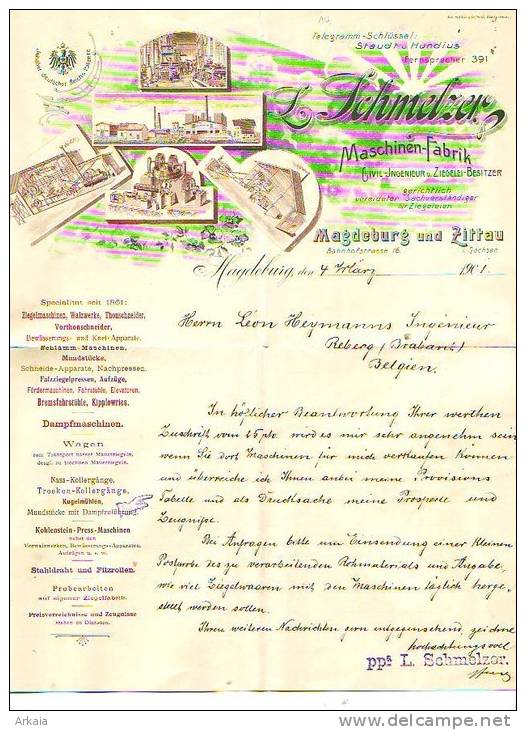 Telegramm-Schlüssel:
Staudt u Hundius
Fernsprecher 391
L. Schmelzer,
Maschinen-Fabrik
Civil-Ingenieur u. Ziegelei-Besitzer
gerichtlich
vereideter Sachverständiger
für Ziegeleien
Magdeburg und Zittau
Bahnhofstrasse 16.
Sachsen
Magdeburg, den 4 März 1901.
Herrn Léon Heymanns Ingénieur
Reberg (Brabant)
Belgien.
Specialität seit 1861:
Ziegelmaschinen, Walzwerke, Thonschneider,
Vorthonschneider,
Bewässerungs- und Knet-Apparate.
Schlämm-Maschinen,
Mundstücke,
Schneide-Apparate, Nachpressen.
Falzziegelpressen, Aufzüge,
Fördermaschinen, Fahrstühle, Elevatoren.
Bremsfahrstühle, Kipplowries.
Dampfmaschinen.
Wagen
zum Transport nasser Mauerziegeln,
desgl. zu trocknen Mauerziegeln.
Nass-Kollergänge.
Trocken-Kollergänge,
Kugelmühlen,
Mundstücke mit Dampfzuführung.
Kohlenstein-Press-Maschinen
nebst den
Vorwalzwerken, Bewässerungs-Apparaten,
Aufzügen u. s. w.
Stahldraht und Filzrollen.
Probearbeiten
auf eigener Ziegelfabrik.
Preisverzeichnisse und Zeugnisse
stehen zu Diensten.
In höflicher Beantwortung Ihrer werthen
Zuschrift vom 25 pto. wird es mir sehr angenehm sein
wenn Sie dort Maschinen für mich verkaufen können
und überreiche ich Ihnen anbei meine Provisions
Tabelle und als Drucksache meine Prospecte und
Zeugnisse.
Bei Anfragen bitte um Einsendung einer kleinen
Postprobe des zu verarbeitenden Rohmaterials und Angabe,
wie viel Ziegelwaaren mit den Maschinen täglich herge-
stellt werden sollen.
Ihren weiteren Nachrichten gern entgegensehend, zeichne
hochachtungsvoll
ppa L. Schmelzer.
Arkaia
delcampe.net